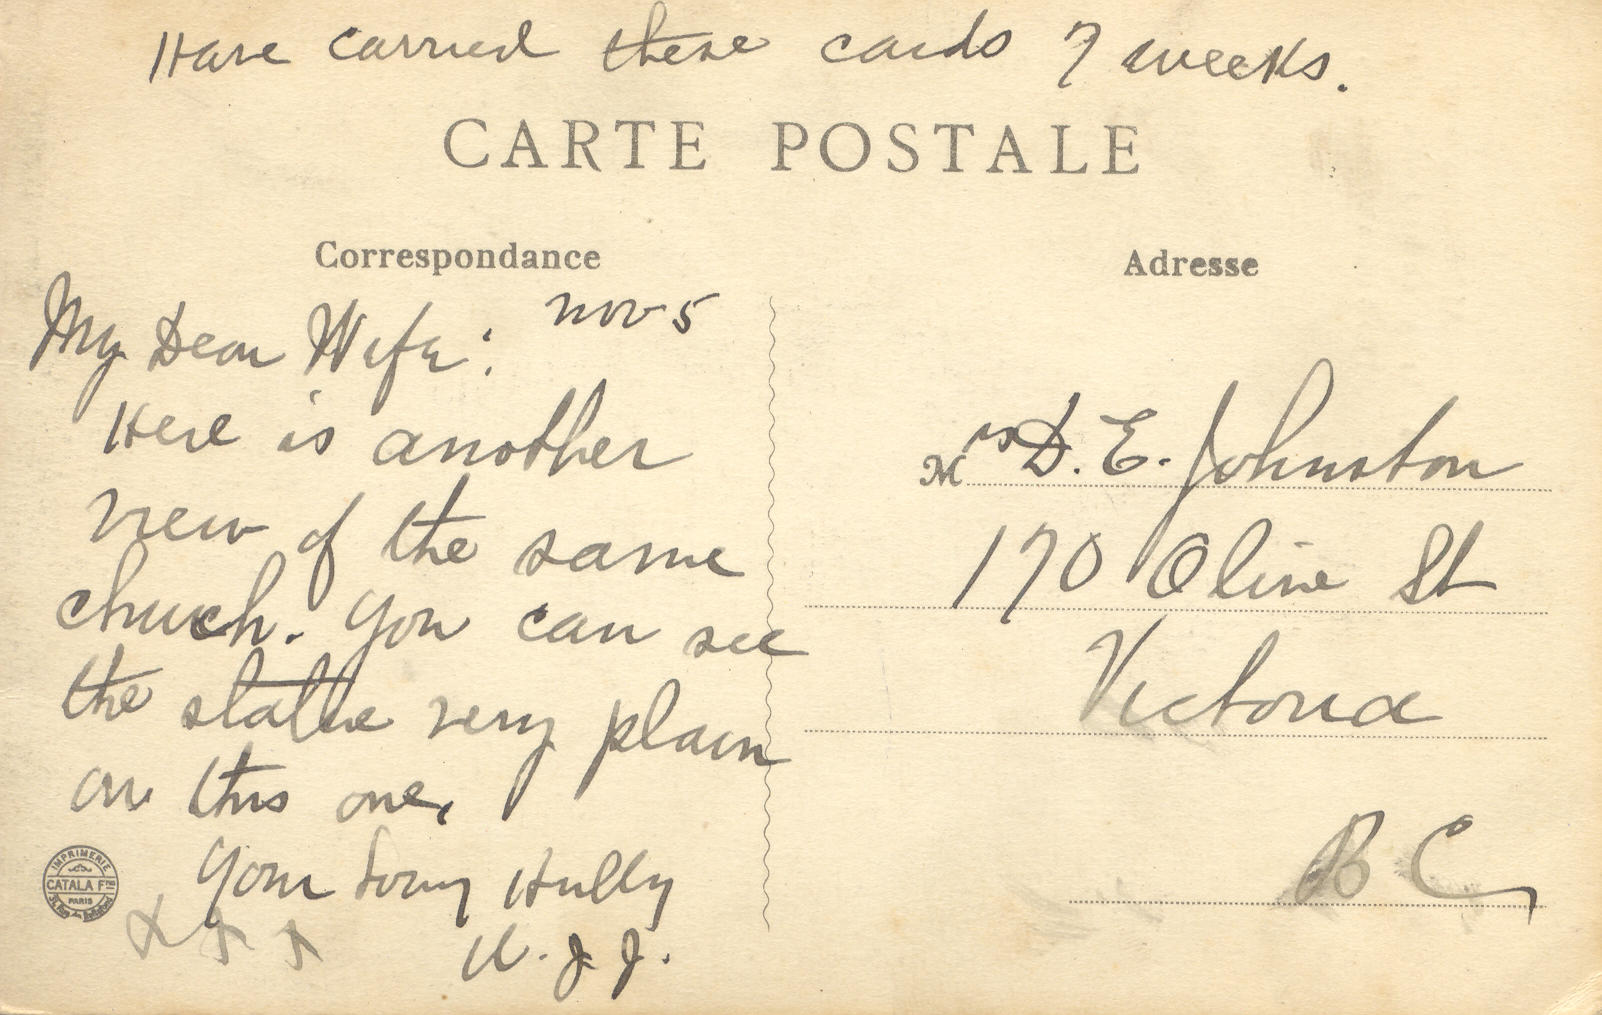 Have carried these cards 7 weeks.
CARTE POSTALE
Correspondance
Adresse
Nov 5
My Dear Wife:
Here is another
view of the same
church. You can see
the statue very plain
on this one.
Your Loving Hubby
J. J.
X X X
IMPRIMERIE
CATALA Fres
PARIS
Mrs D. E. Johnston
170 Olive St
Victoria
B C